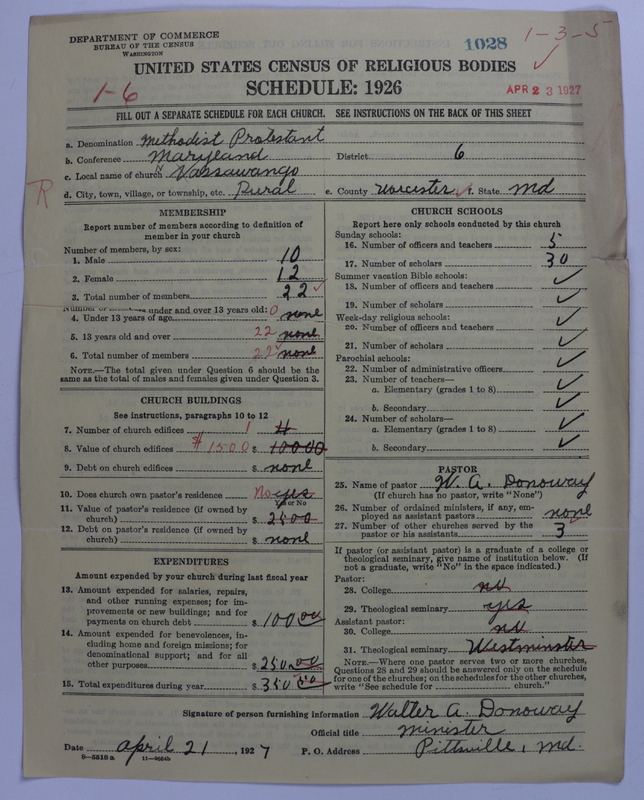 DEPARTMENT OF COMMERCE
BUREAU OF THE CENSUS
WASHINGTON
1028
1-3-5
UNITED STATES CENSUS OF RELIGIOUS BODIES
SCHEDULE: 1926
1-6
APR 23 1927
FILL OUT A SEPARATE SCHEDULE FOR EACH CHURCH. SEE INSTRUCTIONS ON THE BACK OF THIS SHEET
a. Denomination Methodist Protestant
b. Conference Maryland District 6
c. Local name of church Nassawango
R
d. City, town, village, or township, etc. Rural e. County Worcester f. State Md
MEMBERSHIP
Report number of members according to definition of
member in your church
Number of members, by sex:
1. Male 10
2. Female 12
3. Total number of members 22 ✓
under and over 13 years old:
4. Under 13 years of age 0 none
5. 13 years old and over 22 none
6. Total number of members 22 none
NOTE.—The total given under Question 6 should be the
same as the total of males and females given under Question 3.
CHURCH BUILDINGS
See instructions, paragraphs 10 to 12
7. Number of church edifices 1 4
8. Value of church edifices $1500 $ 10000
9. Debt on church edifices $ none
10. Does church own pastor's residence No yes
Yes or No
11. Value of pastor's residence (if owned by
church) $ 2500
12. Debt on pastor's residence (if owned by
church) $ none
EXPENDITURES
Amount expended by your church during last fiscal year
13. Amount expended for salaries, repairs,
and other running expenses; for im-
provements or new buildings; and for
payments on church debt $ 100 00
14. Amount expended for benevolences, in-
cluding home and foreign missions; for
denominational support; and for all
other purposes $ 250 00
15. Total expenditures during year $ 350 00
CHURCH SCHOOLS
Report here only schools conducted by this church
Sunday schools:
16. Number of officers and teachers 5
17. Number of scholars 30
Summer vacation Bible schools:
18. Number of officers and teachers ✓
19. Number of scholars ✓
Week-day religious schools:
20. Number of officers and teachers ✓
21. Number of scholars ✓
Parochial schools:
22. Number of administrative officers ✓
23. Number of teachers—
a. Elementary (grades 1 to 8) ✓
b. Secondary ✓
24. Number of scholars—
a. Elementary (grades 1 to 8) ✓
b. Secondary ✓
PASTOR
25. Name of pastor W. A. Donoway
(If church has no pastor, write "None")
26. Number of ordained ministers, if any, em-
ployed as assistant pastors none
27. Number of other churches served by the
pastor or his assistants 3
If pastor (or assistant pastor) is a graduate of a college or
theological seminary, give name of institution below. (If
not a graduate, write "No" in the space indicated.)
Pastor:
28. College no
29. Theological seminary yes
Assistant pastor:
30. College no
31. Theological seminary Westminster
NOTE.—Where one pastor serves two or more churches,
Questions 28 and 29 should be answered only on the schedule
for one of the churches; on the schedules for the other churches,
write "See schedule for church."
Signature of person furnishing information Walter A. Donoway
Official title Minister
Date April 21, 1927 P. O. Address Pittsville, Md.
8-5518 a